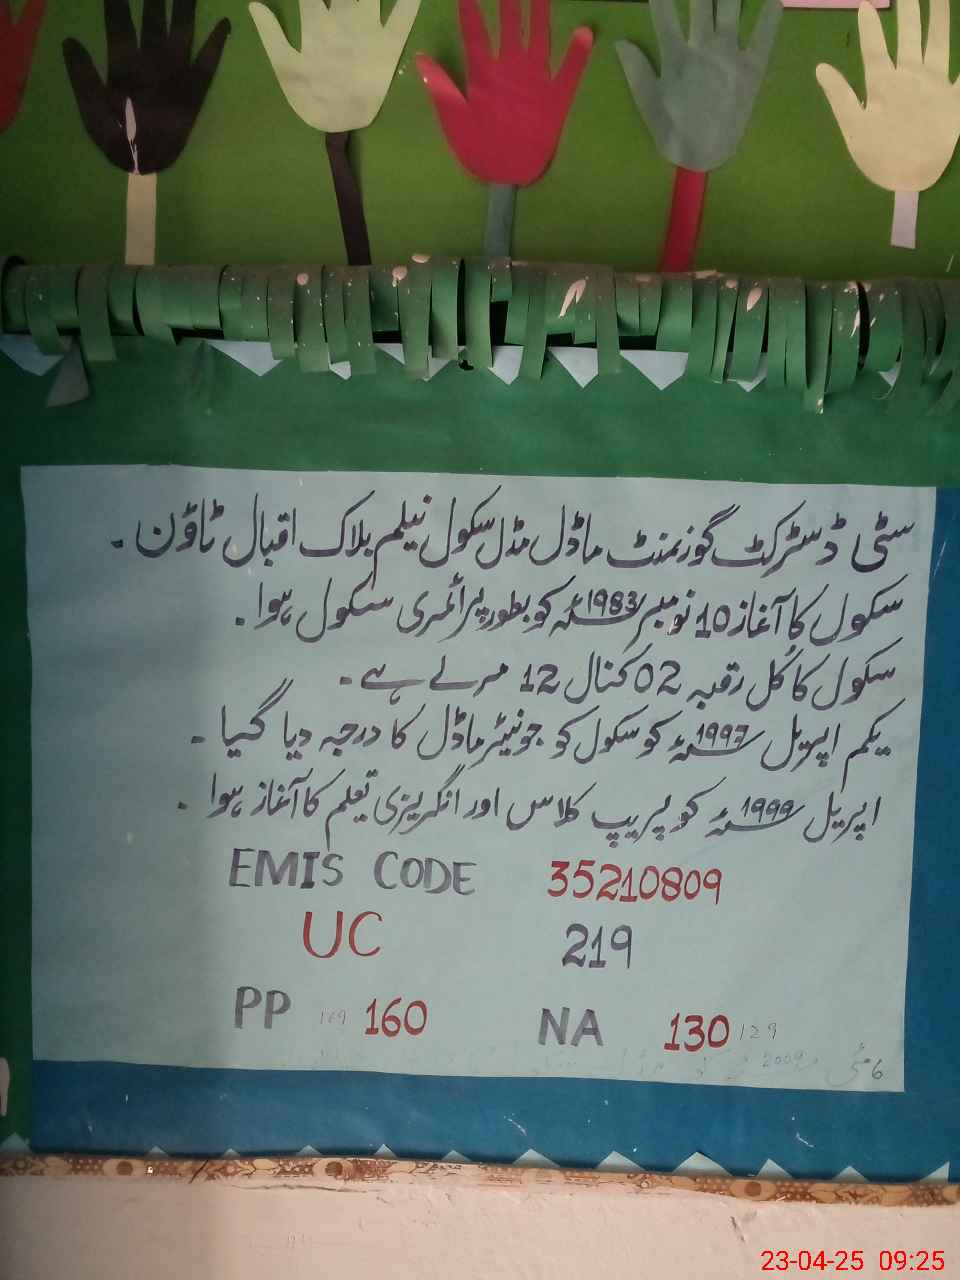 سٹی ڈسٹرکٹ گورنمنٹ ماڈل مڈل سکول نیلم بلاک اقبال ٹاؤن ۔
سکول کا آغاز 10 نومبر 1983ء کو بطور پرائمری سکول ہوا ۔
سکول کا کُل رقبہ 02 کنال 12 مرلے ہے ۔
یکم اپریل 1997ء کو سکول کو جونیئر ماڈل کا درجہ دیا گیا ۔
اپریل 1999ء کو پریپ کلاس اور انگریزی تعلم کا آغاز ہوا ۔
EMIS CODE 35210809
UC 219
PP 169 160 NA 130 129
6 مئی 2009
23-04-25 09:25